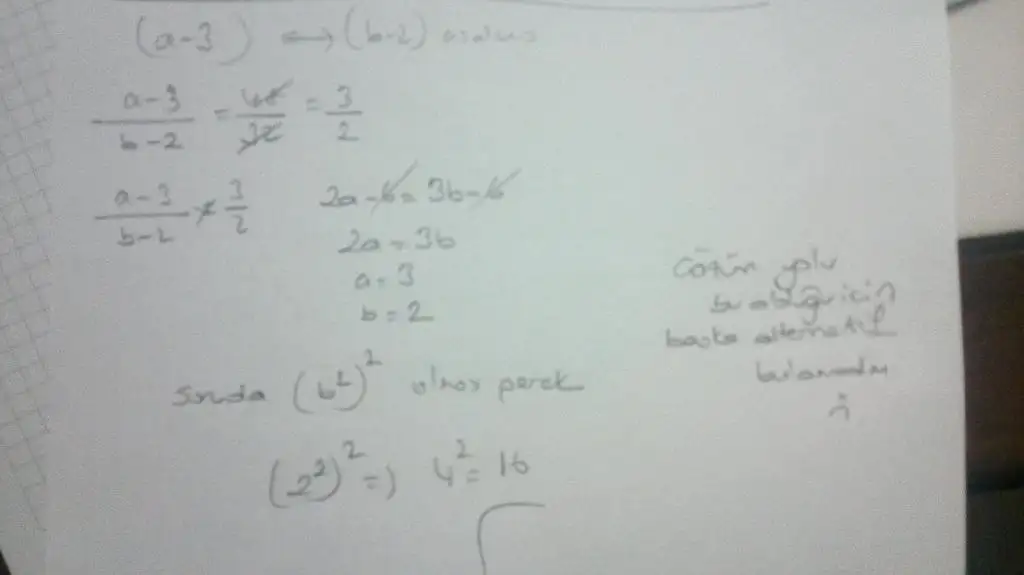 (a-3) ⟷ (b-2)
a-3/b-2 = 48/32 = 3/2
a-3/b-2 = 3/2 2a-6 = 3b-6
2a = 3b
a = 3
b = 2
Çözüm yolu
bu olduğu için
başka alternatif
bulamadım
Soruda (b²)² olması gerek
(2²)² => 4² = 16